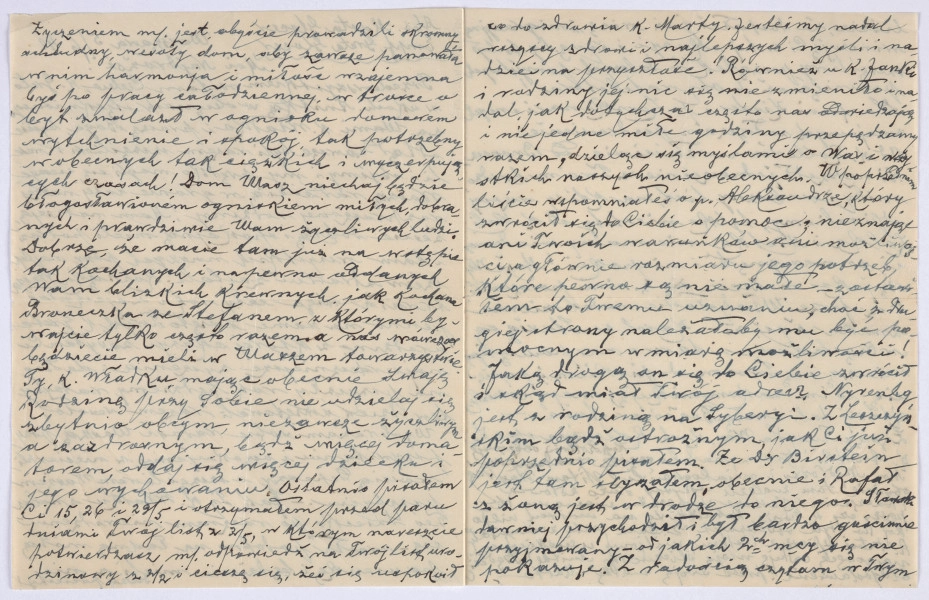 Życzeniem mj. jest obyście prowadzili skromny
schludny, wesoły dom, aby zawsze panowała
w nim harmonja i miłość wzajemna
byś po pracy całodziennej, w trosce o
byt znalazł w ognisku domowem
wytchnienie i spokój, tak potrzebny
w obecnych tak ciężkich i wyczerpują-
cych czasach! Dom Wasz niechaj będzie
błogosławionem ogniskiem miłych, dobra-
nych i prawdziwie Wam życzliwych ludzi.
Dobrze, że macie tam już na wstępie
tak kochanych i napewno oddanych
Wam bliskich krewnych, jak kochana
Broneczka ze Stefanem, z którymi by-
wajcie tylko często razem, a nas wówczas
będziecie mieli w Waszem towarzystwie.
Ty, K. Władku, mając obecnie Swoją
Rodzinę przy Sobie nie udzielaj się
zbytnio obcym, nie zawsze życzliwym
a zazdrosnym, bądź więcej doma-
torem, oddaj się więcej dziecku i
jego wychowaniu. Ostatnio pisałem
Ci 15, 26 i 29/5 i otrzymałem przed paru
dniami Twój list z 2/5, w którym nareszcie
potwierdzasz mj. odpowiedź na Twój list uro-
dzinowy z 2/2, i cieszę się, żeś się uspokoił
co do zdrowia K. Marty. Jesteśmy nadal
rzeźcy zdrowi i najlepszych myśli i na
dziei na przyszłość! Również u K. Janki
i rodziny jej nic się nie zmieniło i na
dal, jak dotychczas często nas odwiedzają
i nie jedne miłe godziny przepędzamy
razem, dzieląc się myślami o Was i wszy-
stkich naszych nieobecnych. W poprzednim
liście wspomniałeś o p. Aleksandrze, który
zwrócił się do Ciebie o pomoc, nieznając
ani Twoich warunków ani możliwoś-
ci a głównie rozmiaru jego potrzeb,
które pewno są nie małe - zostawi-
łem to Twemu uznaniu, choć z dru
giej strony należałoby mu być po
mocnym w miarę możliwości!
Jaką drogą on się do Ciebie zwrócił
i skąd miał Twój adres? Nyrenbg
jest z rodziną na Syberyi. Z
skim bądź ostrożnym, jak Ci już
poprzednio pisałem. Że Dr Birstein
jest tam słyszałem, obecnie i Rafał
z żoną jest w drodze do niego.
dawniej przychodził i był bardzo gościnnie
przyjmowany - od jakich 2ch mcy się nie
pokazuje. Z radością czytam w Twym